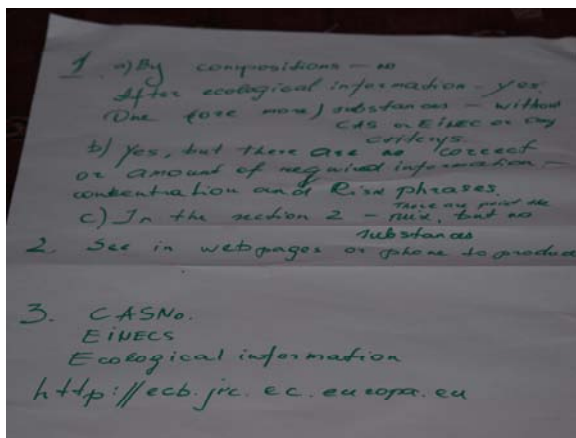 1 a) By compositions - no
After ecological information - yes.
One (ore more) substances - without
CAS or EiNEC or any
b) Yes, but there are no correct
or amount of required information -
concentration and Risk phrases.
There are point the
c) In the section 2 - mix, but no
substances
2. See in webpages or phone to produc
3. CASNo.
EiNECS
Ecological information
http://ecb.jrc.ec.europa.eu